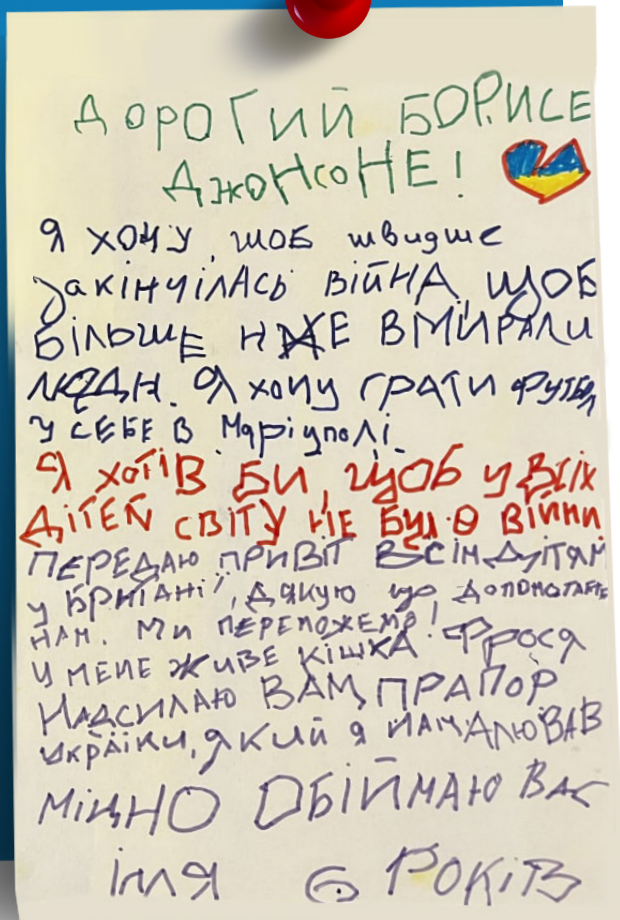 ДОРОГИЙ БОРИСЕ
ДЖОНСОНЕ!
Я ХОЧУ, ЩОБ ШВИДШЕ
ЗАКІНЧІЛАСЬ ВІЙНА, ЩОБ
БІЛЬШЕ НЕ ВМИРАЛИ
ЛЮДИ. Я ХОЧУ ГРАТИ ФУТБОЛ
У СЕБЕ В МАРІУПОЛІ.
Я ХОТІВ БИ, ЩОБ У ВСІХ
ДІТЕЙ СВІТУ НЕ БУЛО ВІЙНИ.
ПЕРЕДАЮ ПРИВІТ ВСІМ ДІТЯМ
У БРИТАНІЇ, ДЯКУЮ ЩО ДОПОМОГАЄТЕ
НАМ. МИ ПЕРЕМОЖЕМО!
У МЕНЕ ЖИВЕ КІШКА ФРОСЯ
НАДСИЛАЮ ВАМ ПРАПОР
УКРАЇНИ, ЯКИЙ Я НАМАЛЮВАВ
МІЦНО ОБІЙМАЮ ВАС
ІЛЛЯ 6 РОКІВ